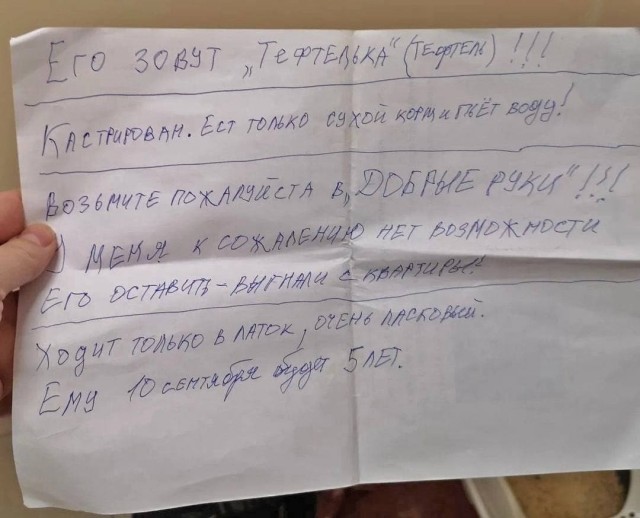 Его зовут „Тефтелька“ (Тефтель) !!!
Кастрирован. Ест только сухой корм и пьёт воду!
Возьмите пожалуйста в „Добрые руки“ !!!
У меня к сожалению нет возможности
его оставить - выгнали с квартиры!
Ходит только в латок, очень ласковый.
Ему 10 сентября будет 5 лет.